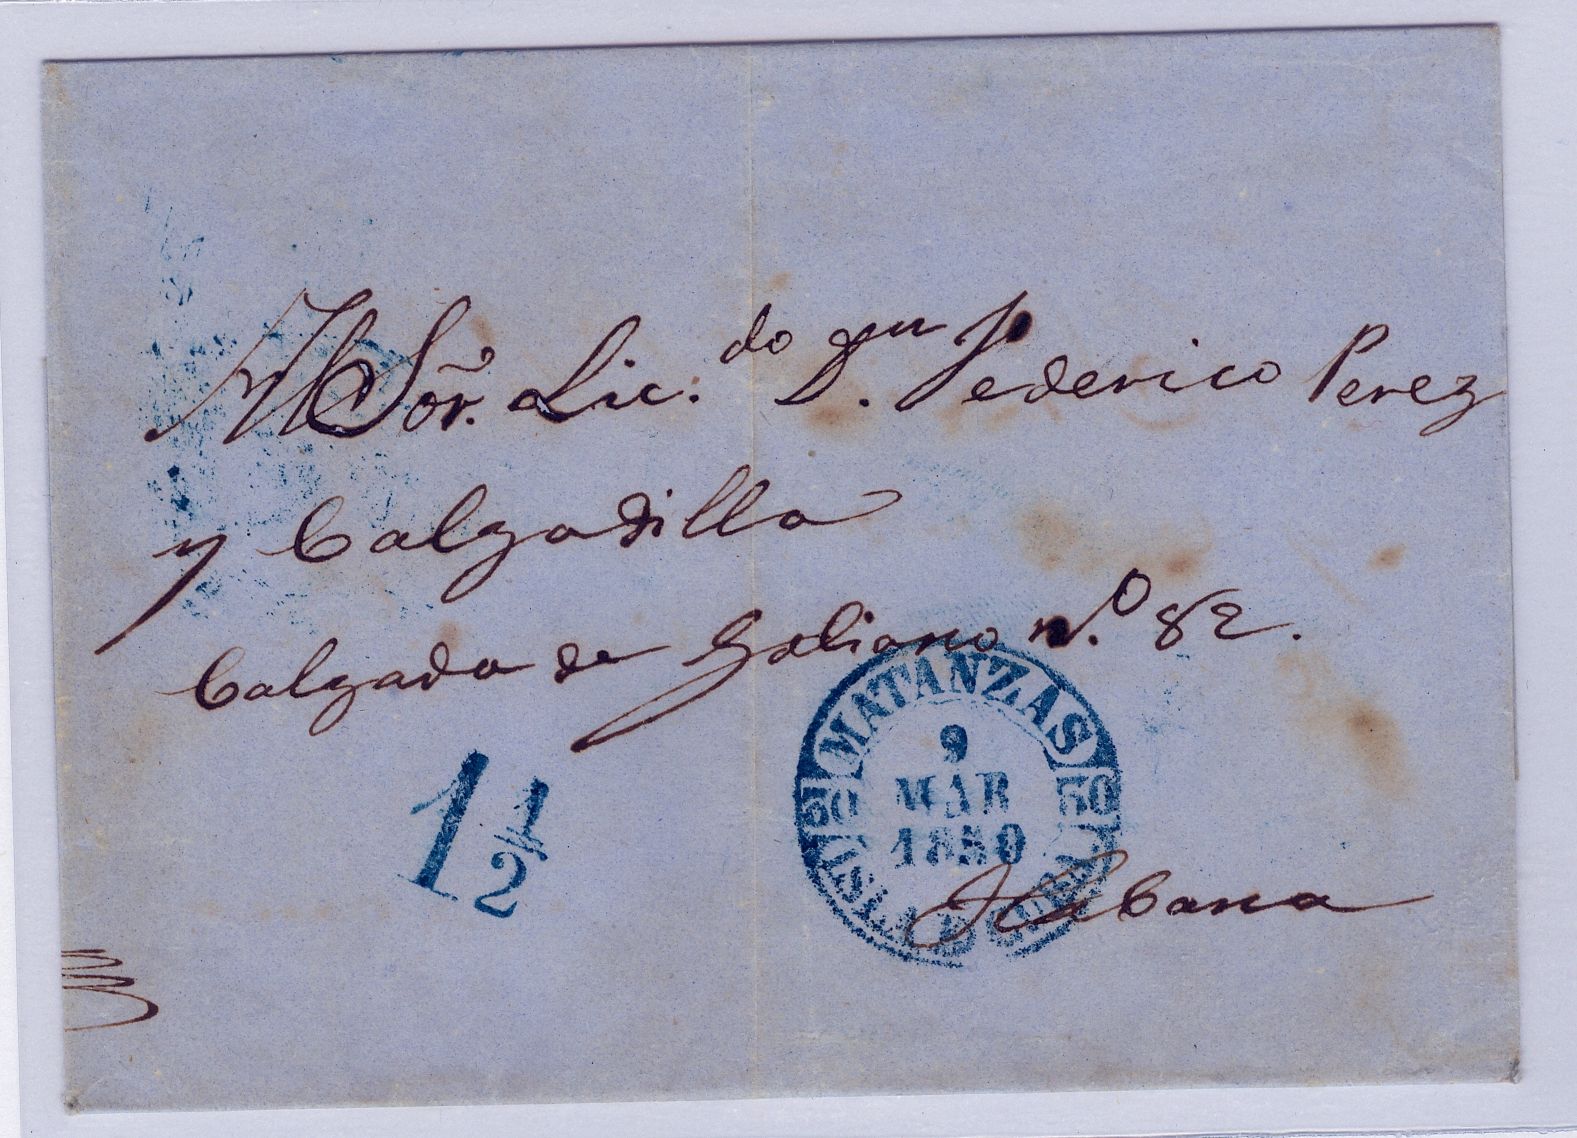 Sōr. Lic.do D.n Federico Perez
y Calzadilla
Calzada de Galiano n.o 82.
1 1/2
MATANZAS
9
MAR
1850
50
50
ISLA DE CUBA
Habana